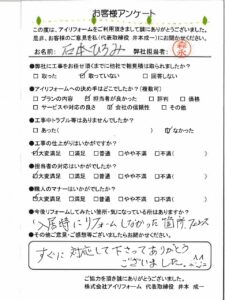 お客様アンケート
この度は、アイリフォームをご利用頂きまして誠にありがとうございました。
是非、お客様のご意見を私(代表取締役 井本成一)にお聞かせください。
お名前: 石本ひろみ 弊社担当者: 森永
●弊社に工事をお任せ頂くまでに他社で相見積は取られましたか?
□取った ☑取っていない □回答しない
●アイリフォームへの決め手はどこでしたか?(複数可)
□プランの内容 ☑担当者が良かった □評判 □価格
□サービスや対応の良さ □会社の信頼性 □その他
●工事中トラブル等はありませんでしたか?
□あった( ) ☑なかった
●工事の仕上がりはいかがですか?
☑大変満足 □満足 □普通 □やや不満 □不満( )
●担当者の対応はいかがでしたか?
☑大変満足 □満足 □普通 □やや不満 □不満( )
●職人のマナーはいかがでしたか?
☑大変満足 □満足 □普通 □やや不満 □不満( )
●今後リフォームしてみたい箇所・気になっている所はありますか?
入居時にリフォームしなかった箇所
●その他ご意見・ご感想等ございましたらお聞かせください。
すぐに対応して下さってありがとう
ございました。
ご協力を頂き誠にありがとうございました。
株式会社アイリフォーム 代表取締役 井本 成一